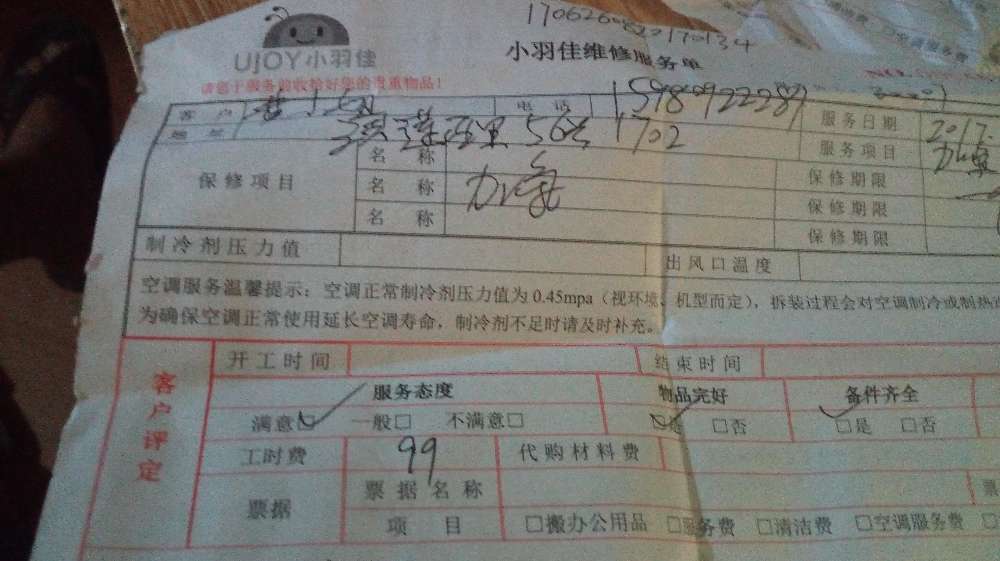 1706260820170134
UJOY小羽佳
小羽佳维修服务单
请您于服务前收拾好您的贵重物品!
客 户 电 话 15980922289 服务日期 2017.
地 址 56号 1702 服务项目 加氟
保修项目 名 称 加氟 保修期限
名 称 保修期限
名 称 保修期限
制冷剂压力值 出风口温度
空调服务温馨提示:空调正常制冷剂压力值为0.45mpa(视环境、机型而定),拆装过程会对空调制冷或制热
为确保空调正常使用延长空调寿命,制冷剂不足时请及时补充。
客户评定
开工时间 结束时间
服务态度 物品完好 备件齐全
满意□ 一般□ 不满意□ □是 □否 □是 □否
工时费 99 代购材料费
票据 票据名称 票
项 目 □搬办公用品 □服务费 □清洁费 □空调服务费 □